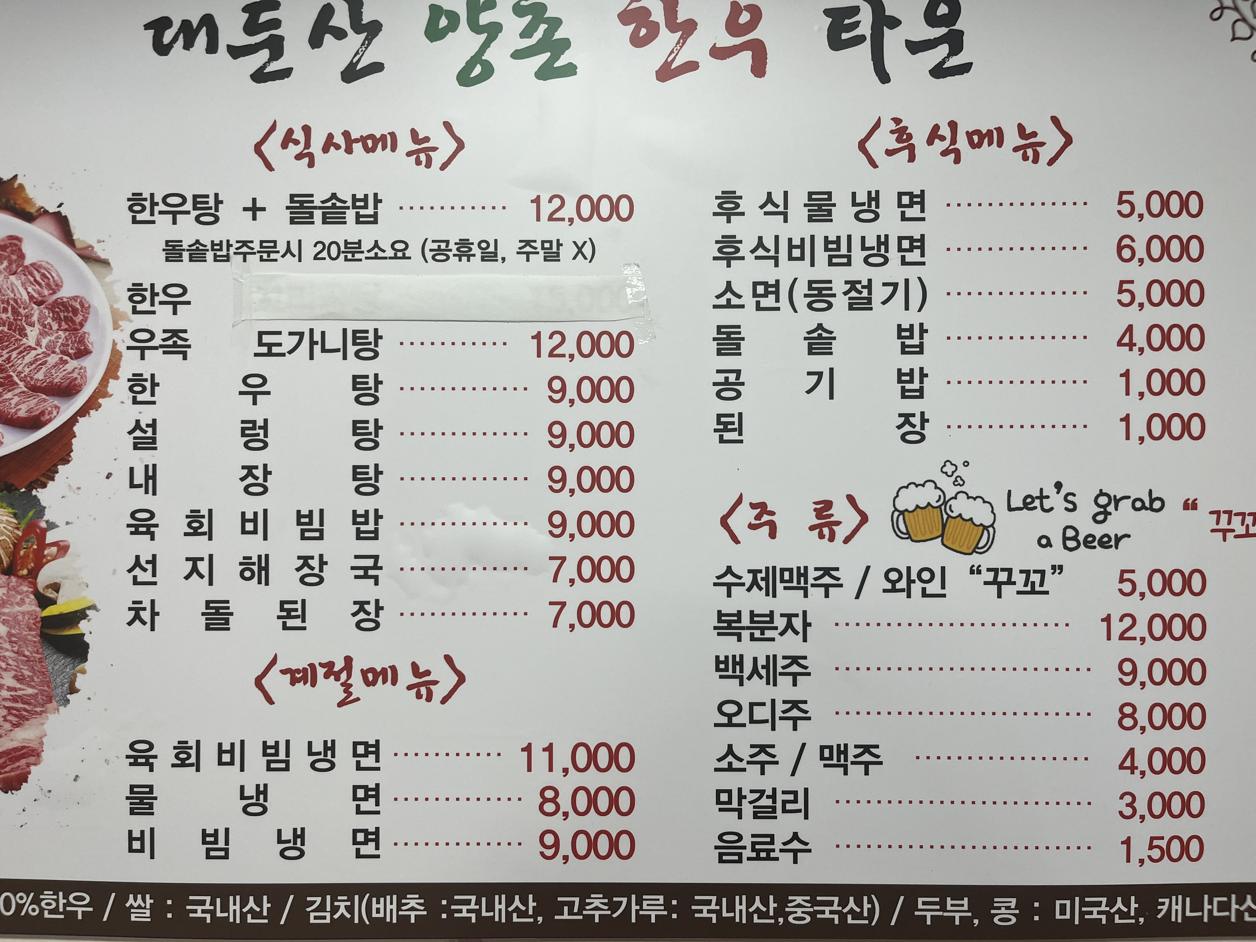 대둔산 양촌 한우 타운
<식사메뉴>
한우탕 + 돌솥밥 ··········· 12,000
돌솥밥주문시 20분소요 (공휴일, 주말 X)
한우
우족 도가니탕 ··········· 12,000
한우탕 ············· 9,000
설렁탕 ············· 9,000
내장탕 ············· 9,000
육회비빔밥 ············· 9,000
선지해장국 ············· 7,000
차돌된장 ············· 7,000
<계절메뉴>
육회비빔냉면 ··········· 11,000
물냉면 ············· 8,000
비빔냉면 ············· 9,000
<후식메뉴>
후식물냉면 ·············· 5,000
후식비빔냉면 ·············· 6,000
소면(동절기) ·············· 5,000
돌솥밥 ·············· 4,000
공기밥 ·············· 1,000
된장 ·············· 1,000
<주류>
Let's grab
a Beer
“꾸꼬
수제맥주 / 와인 “꾸꼬” 5,000
복분자 ······················· 12,000
백세주 ························· 9,000
오디주 ························· 8,000
소주 / 맥주 ················· 4,000
막걸리 ························· 3,000
음료수 ························· 1,500
0%한우 / 쌀 : 국내산 / 김치(배추 :국내산, 고추가루: 국내산,중국산) / 두부, 콩 : 미국산, 캐나다산